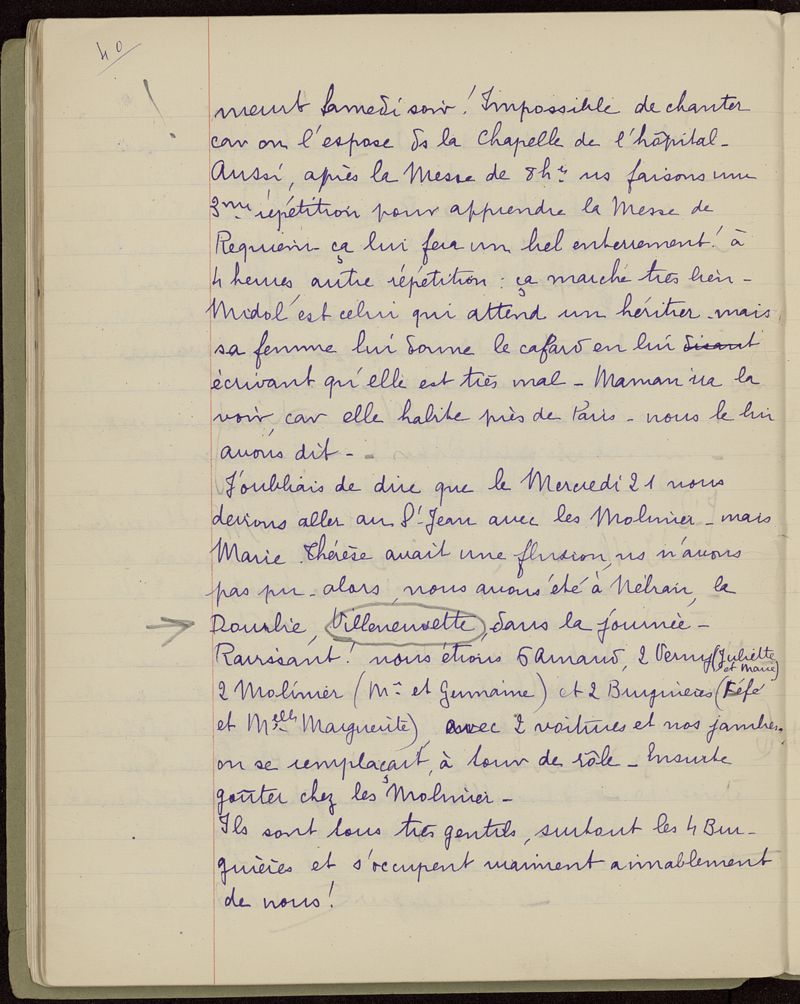 40
!
meurt Samedi soir ! Impossible de chanter
car on l'expose ds la chapelle de l'hôpital -
Aussi, après la Messe de 8h es ns faisons une
3me répétition pour apprendre la Messe de
Requiem - ça lui fera un bel enterrement ! à
4 heures autre répétition : ça marche très bien -
Midol est celui qui attend un héritier - mais
sa femme lui donne le cafard en lui disant
écrivant qu'elle est très mal - Maman ira la
voir, car elle habite près de Paris - nous le lui
avons dit - -
J'oubliais de dire que le Mercredi 21 nous
devions aller au St Jean avec les Molinier - mais
Marie Thérèse avait une fluxion, ns n'avons
pas pu - alors, nous avons été à Nébian, la
→ Dourbie, Villeneuvette, dans la journée -
Ravissant ! nous étions 6 Amand, 2 Verny (Juliette
et Marie)
2 Molinier (Mr et Germaine) et 2 Burguières (Féfé
et Melle Marguerite), avec 2 voitures et nos jambes,
on se remplaçait, à tour de rôle - Ensuite
goûter chez les Molinier -
Ils sont tous très gentils, surtout les 4 Bur-
guières et s'occupent vraiment aimablement
de nous !